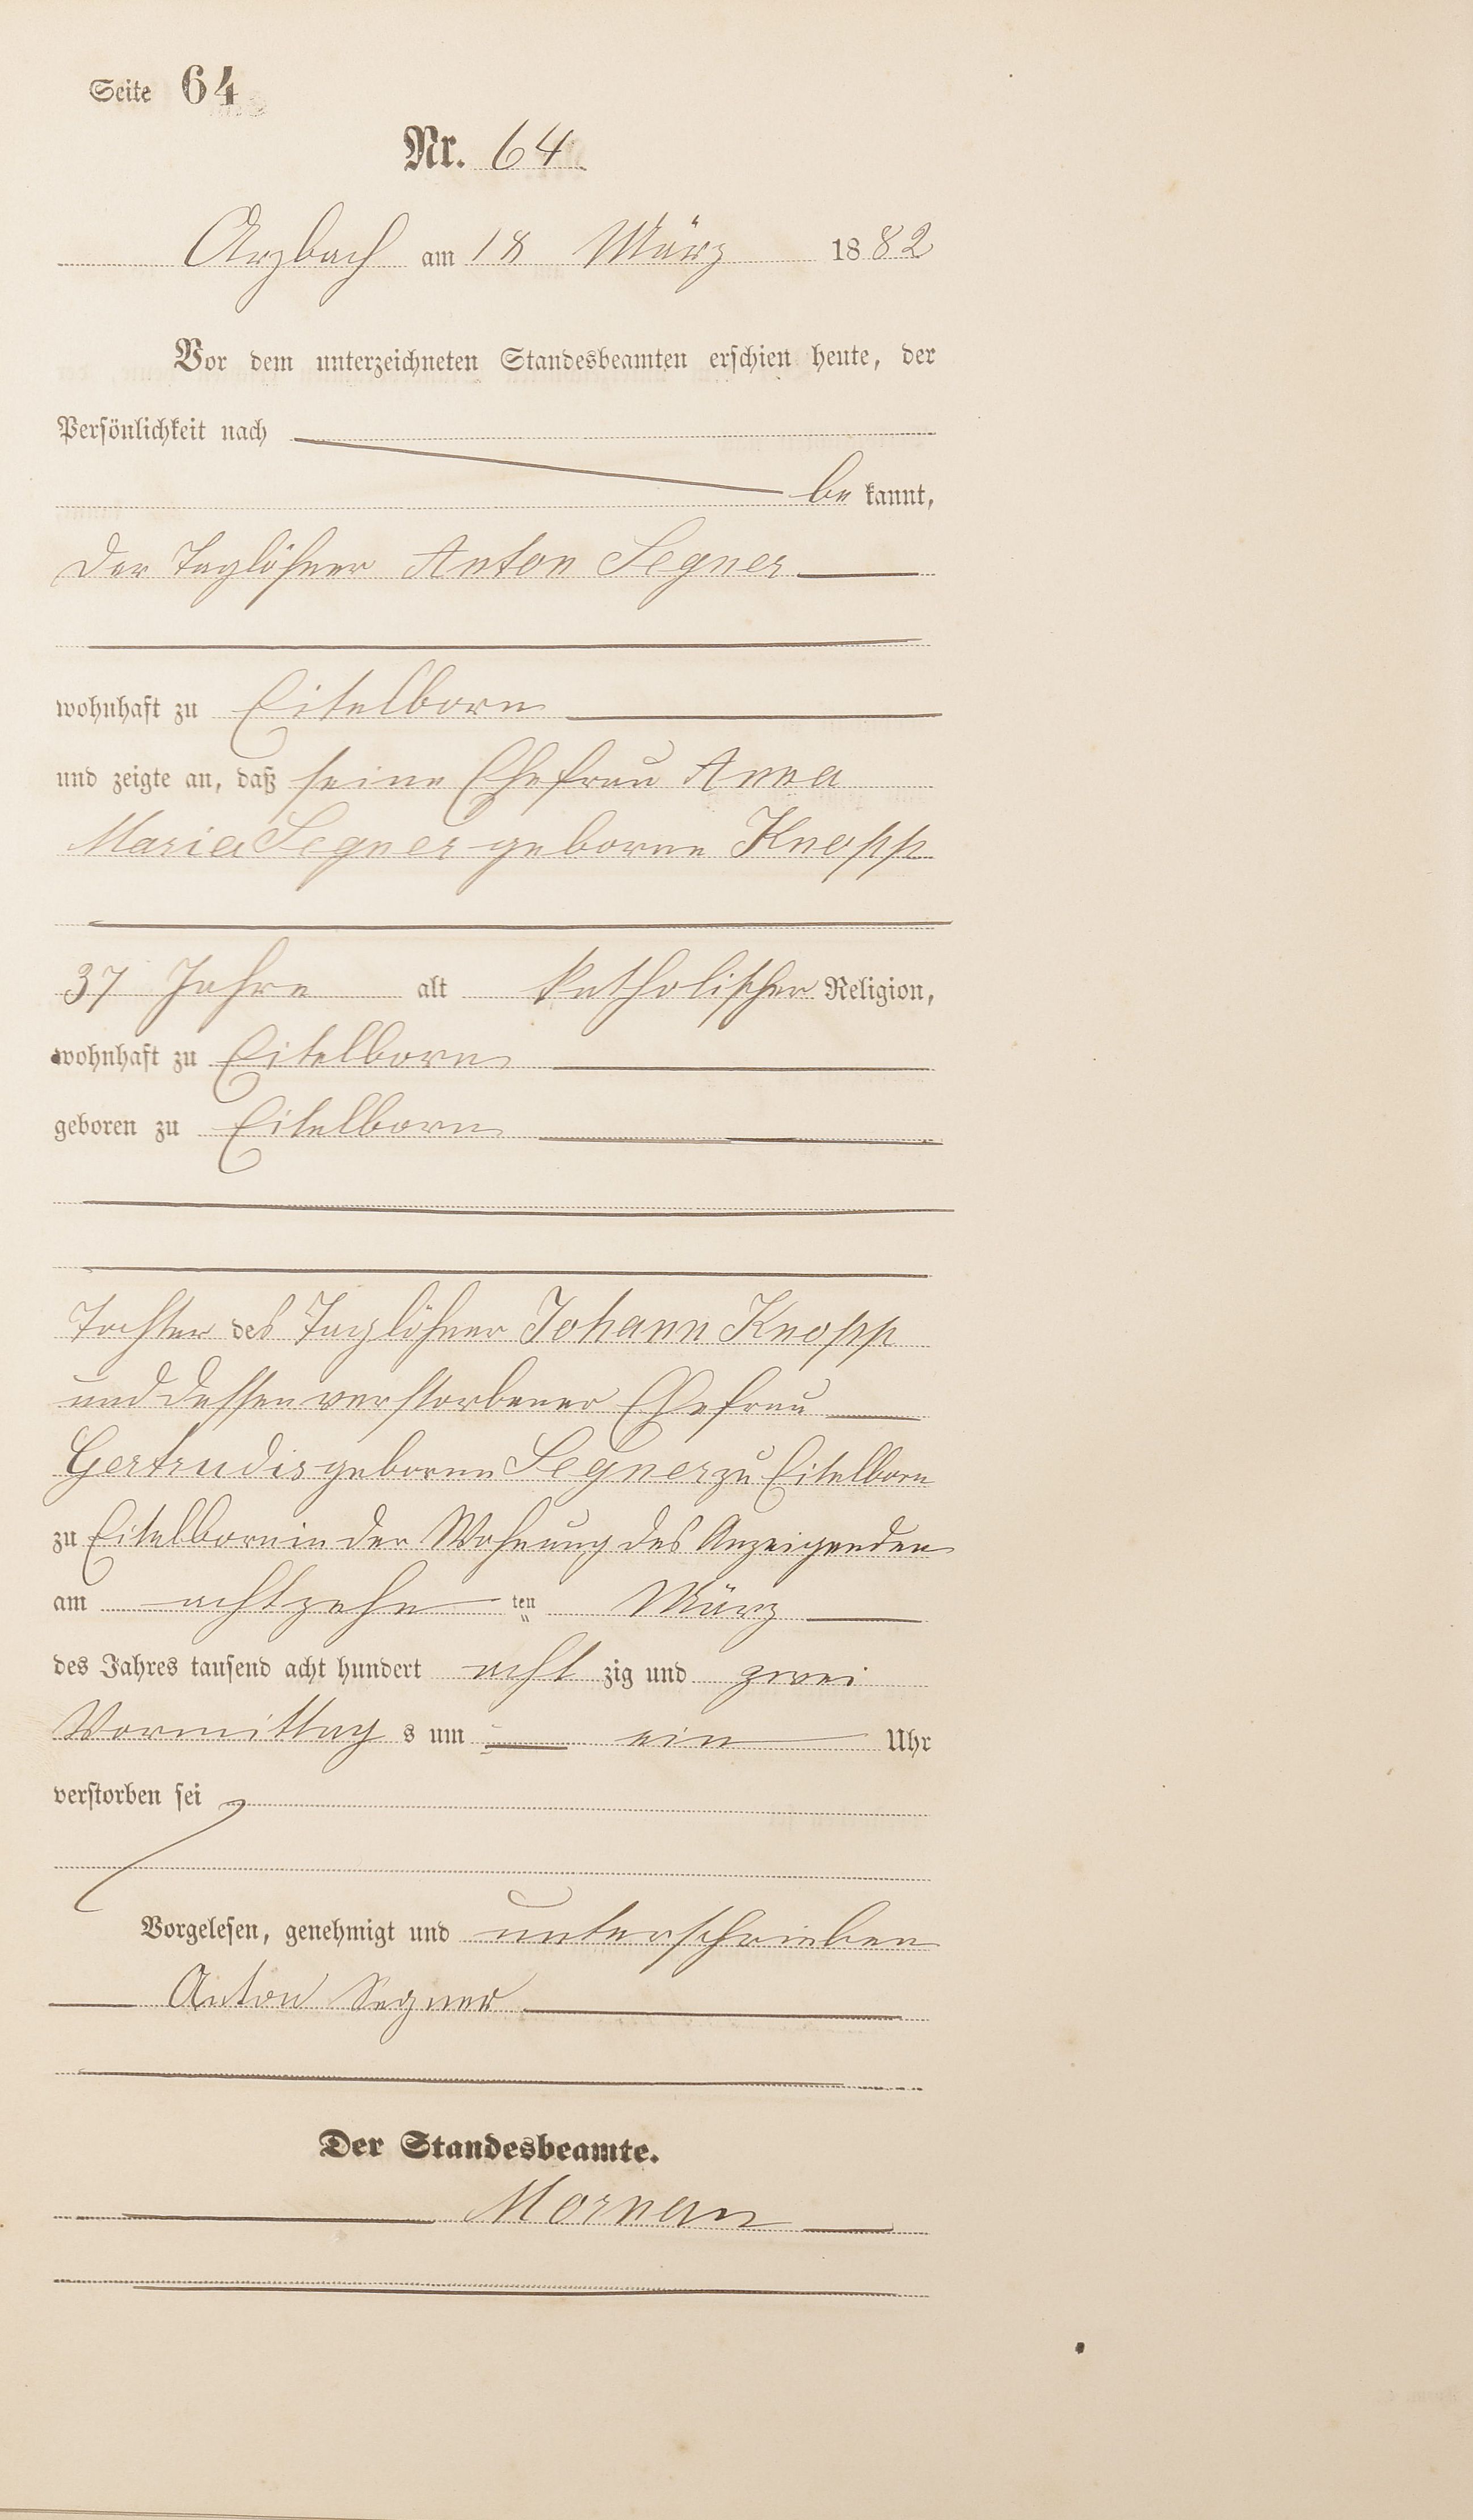 Seite 64
Nr. 64
Arzbach am 18 März 1882
Vor dem unterzeichneten Standesbeamten erschien heute, der
Persönlichkeit nach
be kannt,
der Taglöhner Anton Segner
wohnhaft zu Eitelborn
und zeigte an, daß seine Ehefrau Anna
Maria Segner geborne Knopp
37 Jahre alt katholischer Religion,
wohnhaft zu Eitelborn
geboren zu Eitelborn
Tochter des Taglöhner Johann Knopp
und dessen verstorbener Ehefrau
Gertrudis geborne Segner zu Eitelborn
zu Eitelborn in der Wohnung des Anzeigenden
am achtzehn ten März
des Jahres tausend acht hundert acht zig und zwei
Vormittag s um ein Uhr
verstorben sei
Vorgelesen, genehmigt und unterschrieben
Anton Segner
Der Standesbeamte.